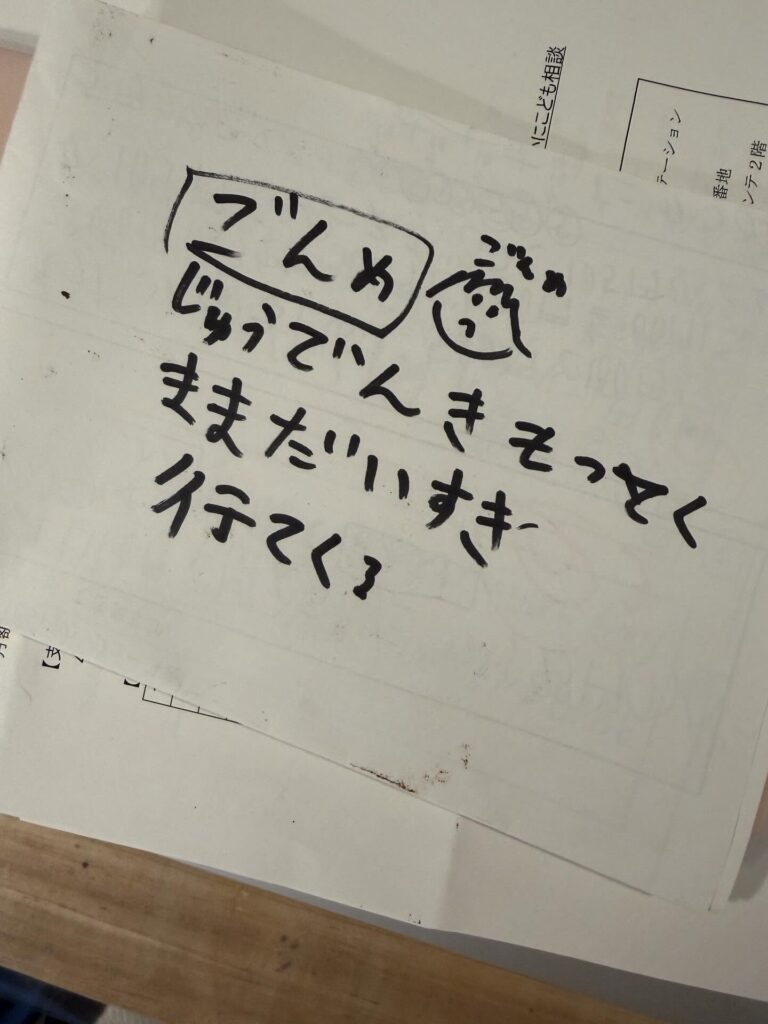 ごんめ
ごんめ
じゅうでんきもってく
ままだいすき
行てくる
いにこども相談
テーション
番地
ンテ2階